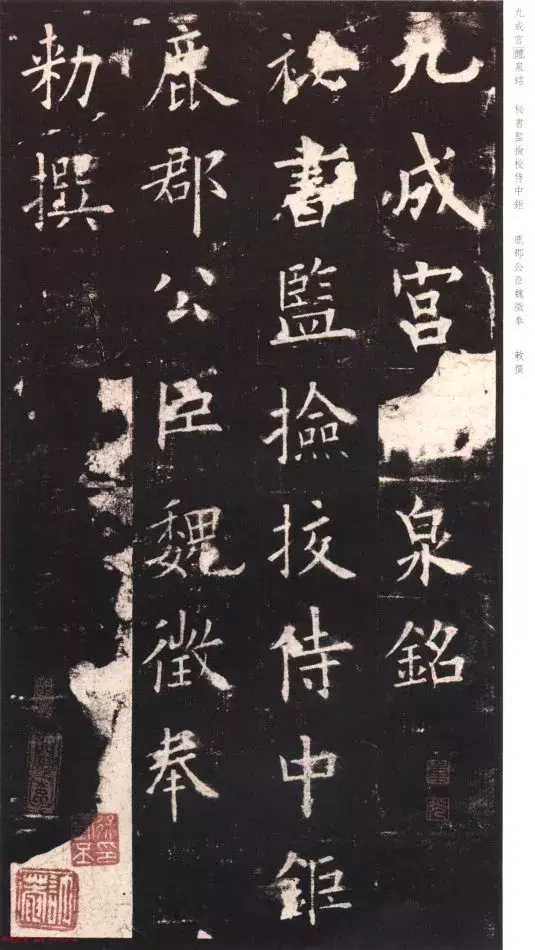 九成宮
泉銘
祕書監撿挍侍中鉅
鹿郡公臣魏徵奉
勑撰
九成宫醴泉銘 秘書監撿校侍中鉅 鹿郡公臣魏徵奉 敕撰